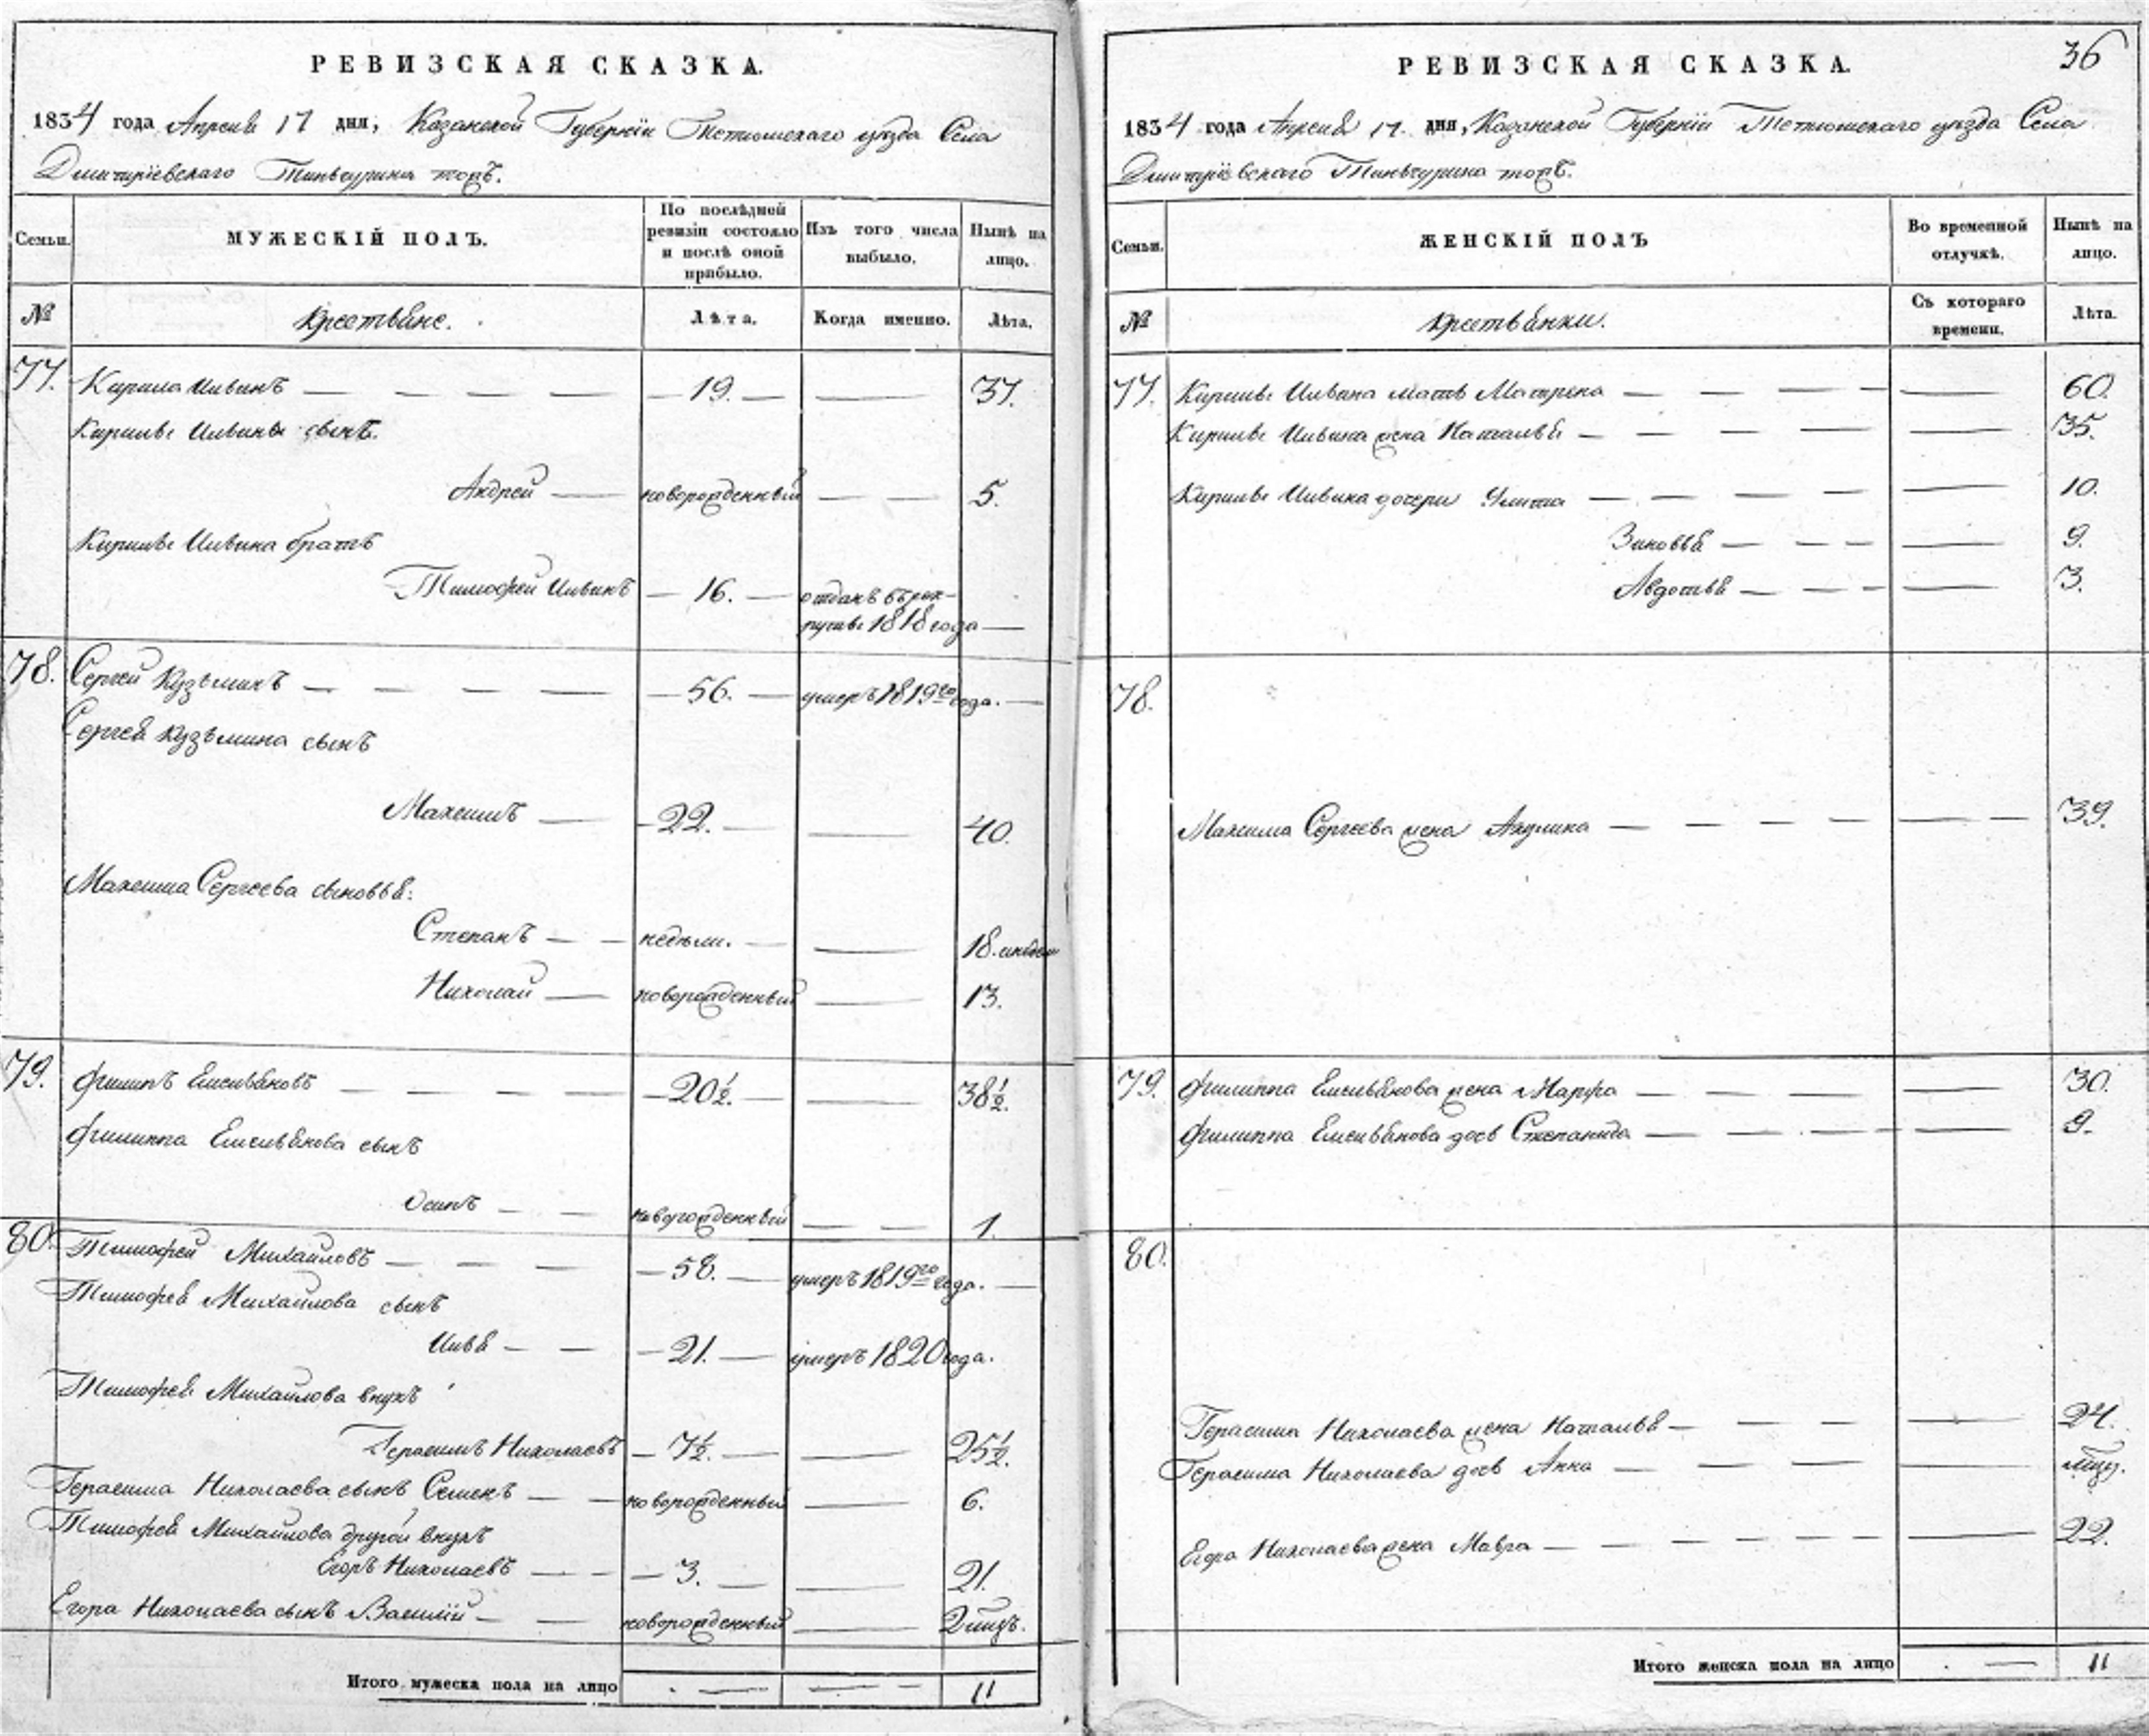 РЕВИЗСКАЯ СКАЗКА.
1834 года Апреля 17 дня, Казанской Губернїи Тетюшскаго уѣзда Села
Дмитрїевскаго Тиньчурина тожъ.
Семьи.
МУЖЕСКІЙ ПОЛЪ.
По послѣдней ревизіи состояло и послѣ оной прибыло.
Изъ того числа выбыло.
Нынѣ на лицо.
№
Крестьяне.
Лѣта.
Когда именно.
Лѣта.
77. Кирила Ильинъ — 19. — 37.
Кирилы Ильина сынъ.
Андрей — новорожденный — 5.
Кирилы Ильина братъ
Тимофей Ильинъ — 16. — отданъ въ рек-
руты 1818 года —
78. Сергей Кузьминъ — 56. — умеръ 1819го года. —
Сергея Кузьмина сынъ
Максимъ — 22. — 40.
Максима Сергеева сыновья:
Степанъ — недѣли. — 18.
Николай — новорожденный — 13.
79. Филипъ Емельяновъ — 20½. — 38½.
Филиппа Емельянова сынъ
Осипъ — новорожденный — 1.
80. Тимофей Михайловъ — 58. — умеръ 1819го года. —
Тимофея Михайлова сынъ
Илья — 21. — умеръ 1820 года.
Тимофея Михайлова внукъ
Герасимъ Николаевъ — 7½. — 25½.
Герасима Николаева сынъ Семенъ — новорожденный — 6.
Тимофея Михайлова другой внукъ
Егоръ Николаевъ — 3. — 21.
Егора Николаева сынъ Василій — новорожденный — 2 мцъ.
Итого мужеска пола на лицо — — 11
РЕВИЗСКАЯ СКАЗКА.
36
1834 года Апреля 17. дня, Казанской Губернїи Тетюшскаго уѣзда Села
Дмитрїевскаго Тиньчурина тожъ.
Семьи.
ЖЕНСКІЙ ПОЛЪ
Во временной отлучкѣ.
Нынѣ на лицо.
№
Крестьянки.
Съ котораго времени.
Лѣта.
77. Кирилы Ильина мать Матрена — 60.
Кирилы Ильина жена Наталья — 35.
Кирилы Ильина дочери Улита — 10.
Зиновья — 9.
Авдотья — 3.
78.
Максима Сергеева жена Акулина — 39.
79. Филиппа Емельянова жена Марфа — 30.
Филиппа Емельянова дочь Степанида — 9.
80.
Герасима Николаева жена Наталья — 24.
Герасима Николаева дочь Анна —
Егора Николаева жена Мавра — 22.
Итого женска пола на лицо — 11